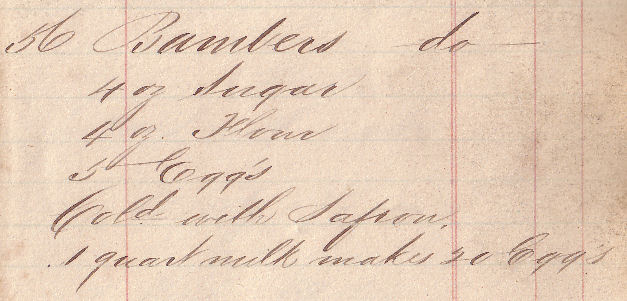 56 Bambers do
4 oz Sugar
4 oz. Flour
5 Egg's
Cold with Safron.
1 quart milk makes 20 Egg's